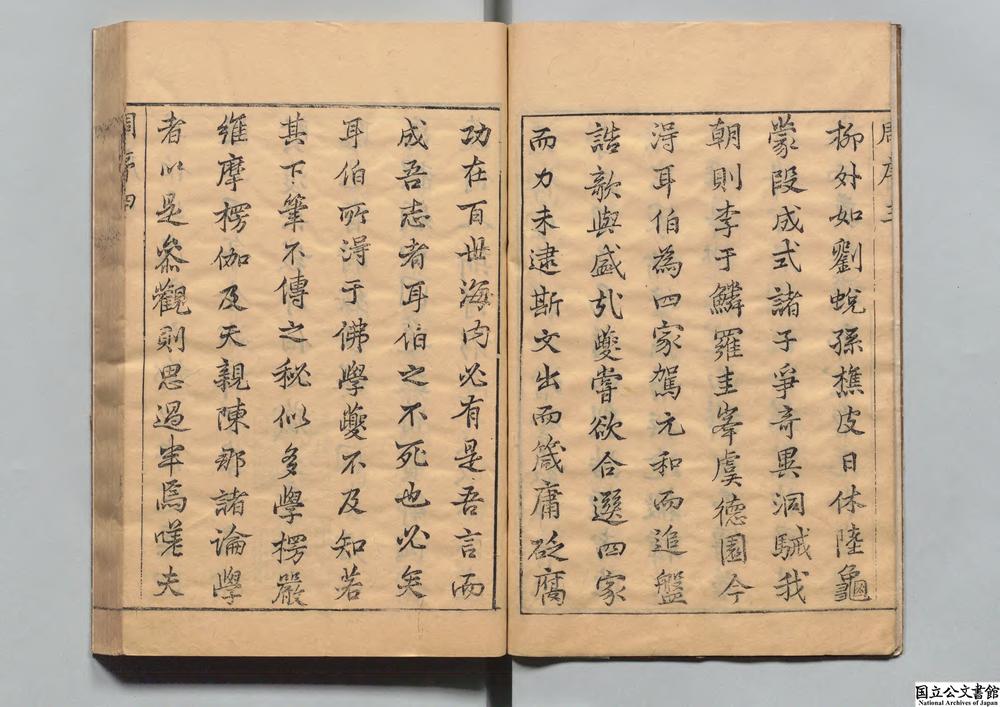 周序三
柳外如劉蛻孫樵皮日休陸龜
蒙段成式諸子爭奇異洞駴我
朝則李于鱗羅圭峯虞德園今
淂耳伯為四家駕元和而追盤
誥歟與盛㢤夔嘗欲合選四家
而力未逮斯文出而箴庸砭腐
功在百世海内必有是吾言而
成吾志者耳伯之不死也必矣
耳伯所淂于佛學夔不及知若
其下筆不傳之秘似多學楞嚴
維摩楞伽及天親陳那諸論學
者以是叅觀則思過半焉嗟夫
周序四
国立公文書館
National Archives of Japan